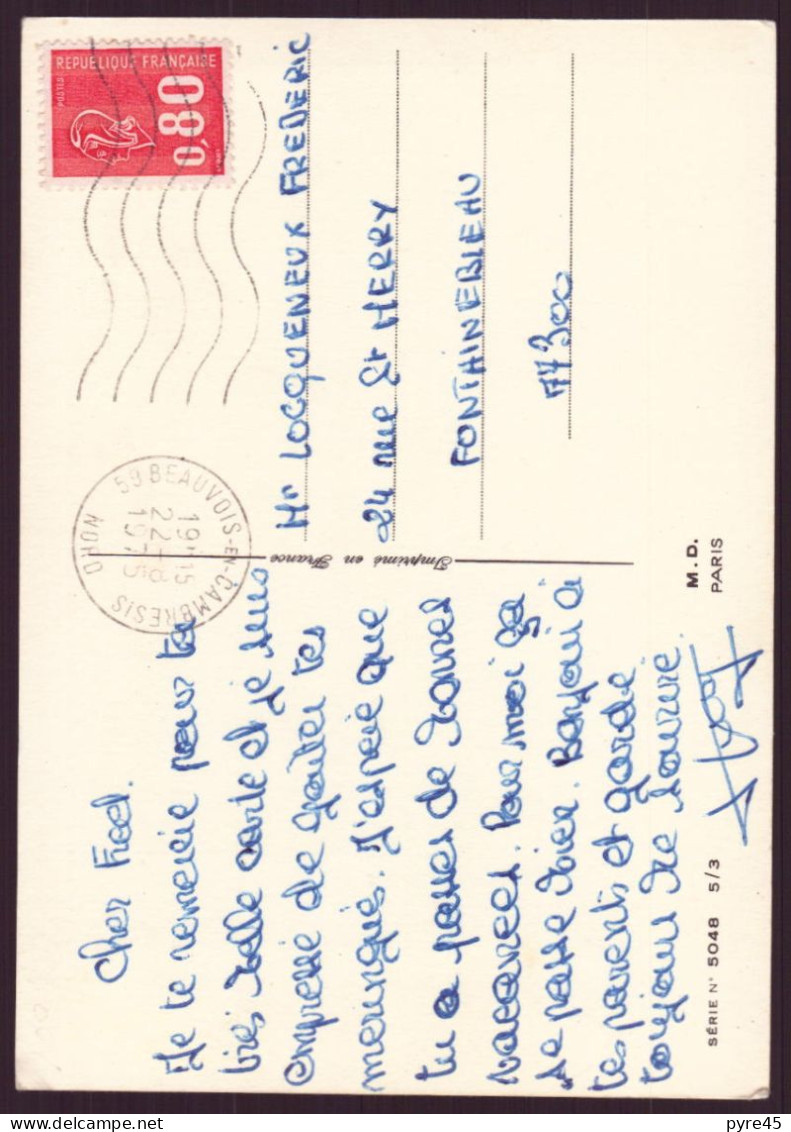 Cher Fred.
Je te remercie pour ta
très belle carte et je suis
empressé de goûter tes
meringues. J'espère que
tu a passer de bonnes
vacances. Pour moi ça
se passe bien. Bonjour à
tes parents et garde
toujour le sourire.
SÉRIE N° 5048 5/3
M. D.
PARIS
Imprimé en France
REPUBLIQUE FRANÇAISE
POSTES
0,80
59 BEAUVOIS-EN-CAMBRESIS
19H15
22-8
1975
NORD
Mr LOCQUENEUX FREDERIC
24 rue St MERRY
FONTAINEBLEAU
77300
pyre45